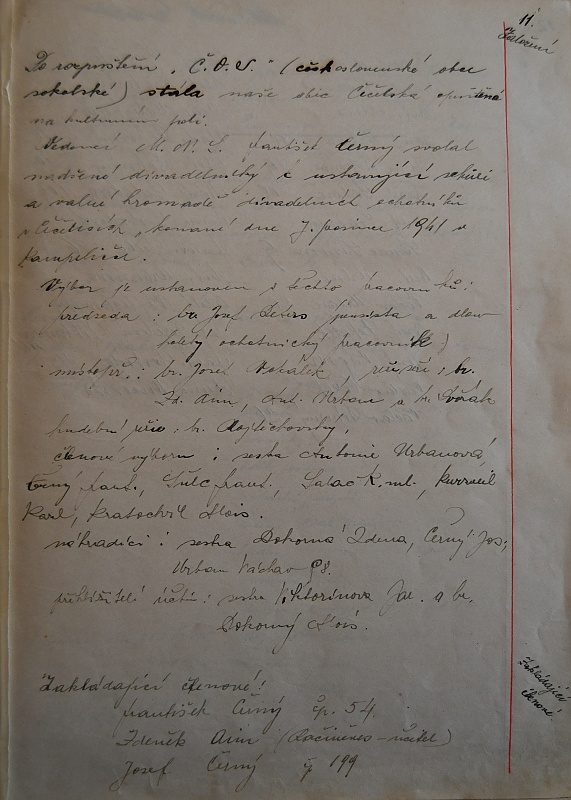 11.
Založení
Po rozpuštění „Č.O.S." (československé obce
sokolské) stála naše obec Čečelská opuštěná
na kulturním poli.
Vedoucí M. N. S. František Černý svolal
nadšené divadelníky k ustavující schůzi
a valné hromadě divadelních ochotníků
v Čečelicích, konané dne 7. prosince 1941 v
Kampeličce.
Výbor je ustanoven z těchto pracovníků:
předseda: br. Josef a dlou
holetý ochotnický pracovník)
místopř.: br. Josef Vokálek, režiséři: br.
Zd. Aim, Ant. Urban a br. Dvořák
hudební režie: br. Vojtěchovský,
členové výboru: sestra Antonie Urbanová,
Černý Frant., Šulc Frant., Salač K. ml.,
Karl, Kratochvíl Alois.
náhradníci: sestra Pokorná Zdena, Černý Jos.,
Urban Václav 98.
přehlížitelé účtů: sestra Viktorinova Jar. a br.
Pokorný Alois.
Zakládající členové:
Zakládající
členové.
František Černý čp. 54.
Zdeněk Aim (Račiněves - učitel)
Josef Černý čp 199